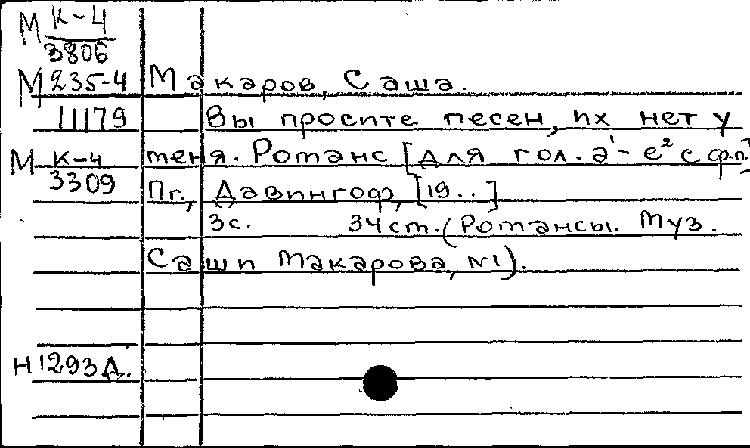 М К-4
3806
М 235-4 Макаров, Саша.
11179 Вы просите песен, их нет у
М К-4 меня. Романс [для гол. a¹-e² с ф.п.]
3309 Пг., Давингоф, [19..]
3с. 34см. (Романсы. Муз.
Саши Макарова, №1).
Н 1293д.